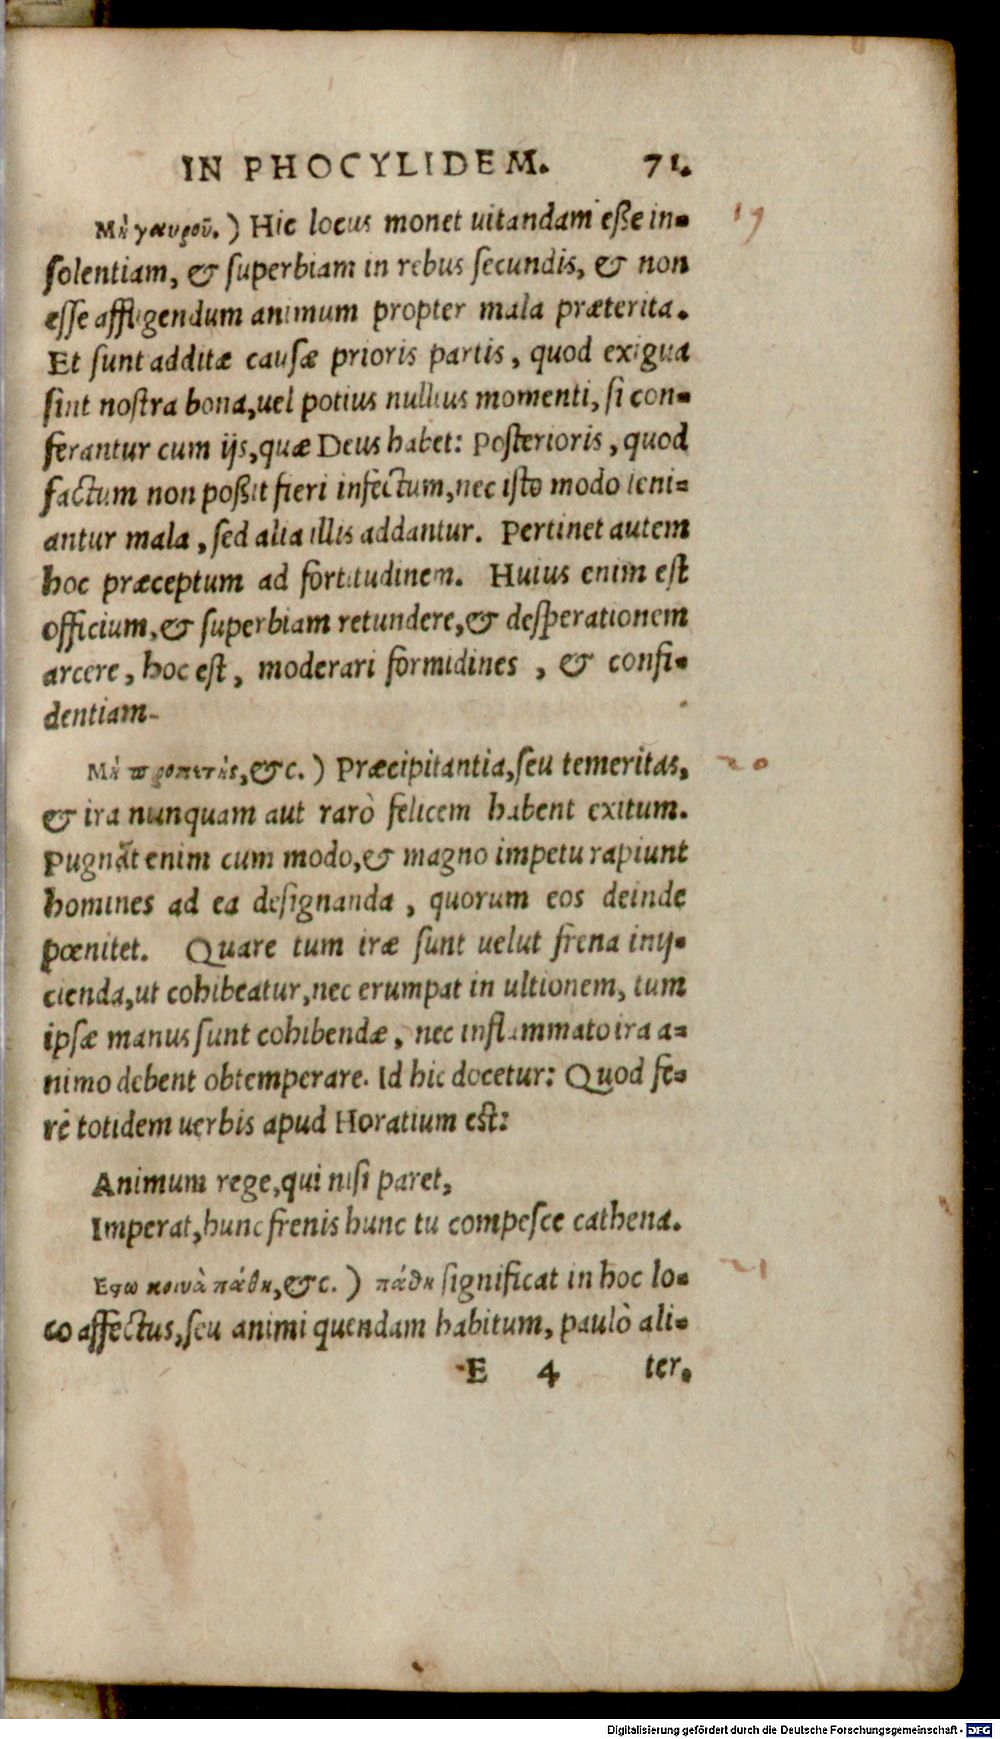 IN PHOCYLIDEM. 71.
Μὴ γαυροῦ.) Hic locus monet uitandam eſſe in-
ſolentiam, & ſuperbiam in rebus ſecundis, & non
eſſe affligendum animum propter mala præterita.
Et ſunt additæ cauſæ prioris partis, quod exigua
ſint noſtra bona, uel potius nullius momenti, ſi con-
ferantur cum ijs, quæ Deus habet: Poſterioris, quod
factum non poßit fieri infectum, nec iſto modo leni-
antur mala, ſed alia illis addantur. Pertinet autem
hoc præceptum ad fortitudinem. Huius enim eſt
officium, & ſuperbiam retundere, & deſperationem
arcere, hoc eſt, moderari formidines, & confi-
dentiam.
19
Μὴ προπετὴς, &c.) Præcipitantia, ſeu temeritas,
& ira nunquam aut rarò felicem habent exitum.
Pugnāt enim cum modo, & magno impetu rapiunt
homines ad ea deſignanda, quorum eos deinde
pœnitet. Quare tum iræ ſunt uelut frena inij-
cienda, ut cohibeatur, nec erumpat in ultionem, tum
ipſæ manus ſunt cohibendæ, nec inflammato ira a-
nimo debent obtemperare. Id hic docetur: Quod fe-
rè totidem uerbis apud Horatium eſt:
20
Animum rege, qui niſi paret,
Imperat, hunc frenis hunc tu compeſce cathena.
Εϛω κοινὰ πάθη, &c.) πάθη ſignificat in hoc lo-
co affectus, ſeu animi quendam habitum, paulò ali-
21
E 4 ter.
Digitalisierung gefördert durch die Deutsche Forschungsgemeinschaft - DFG